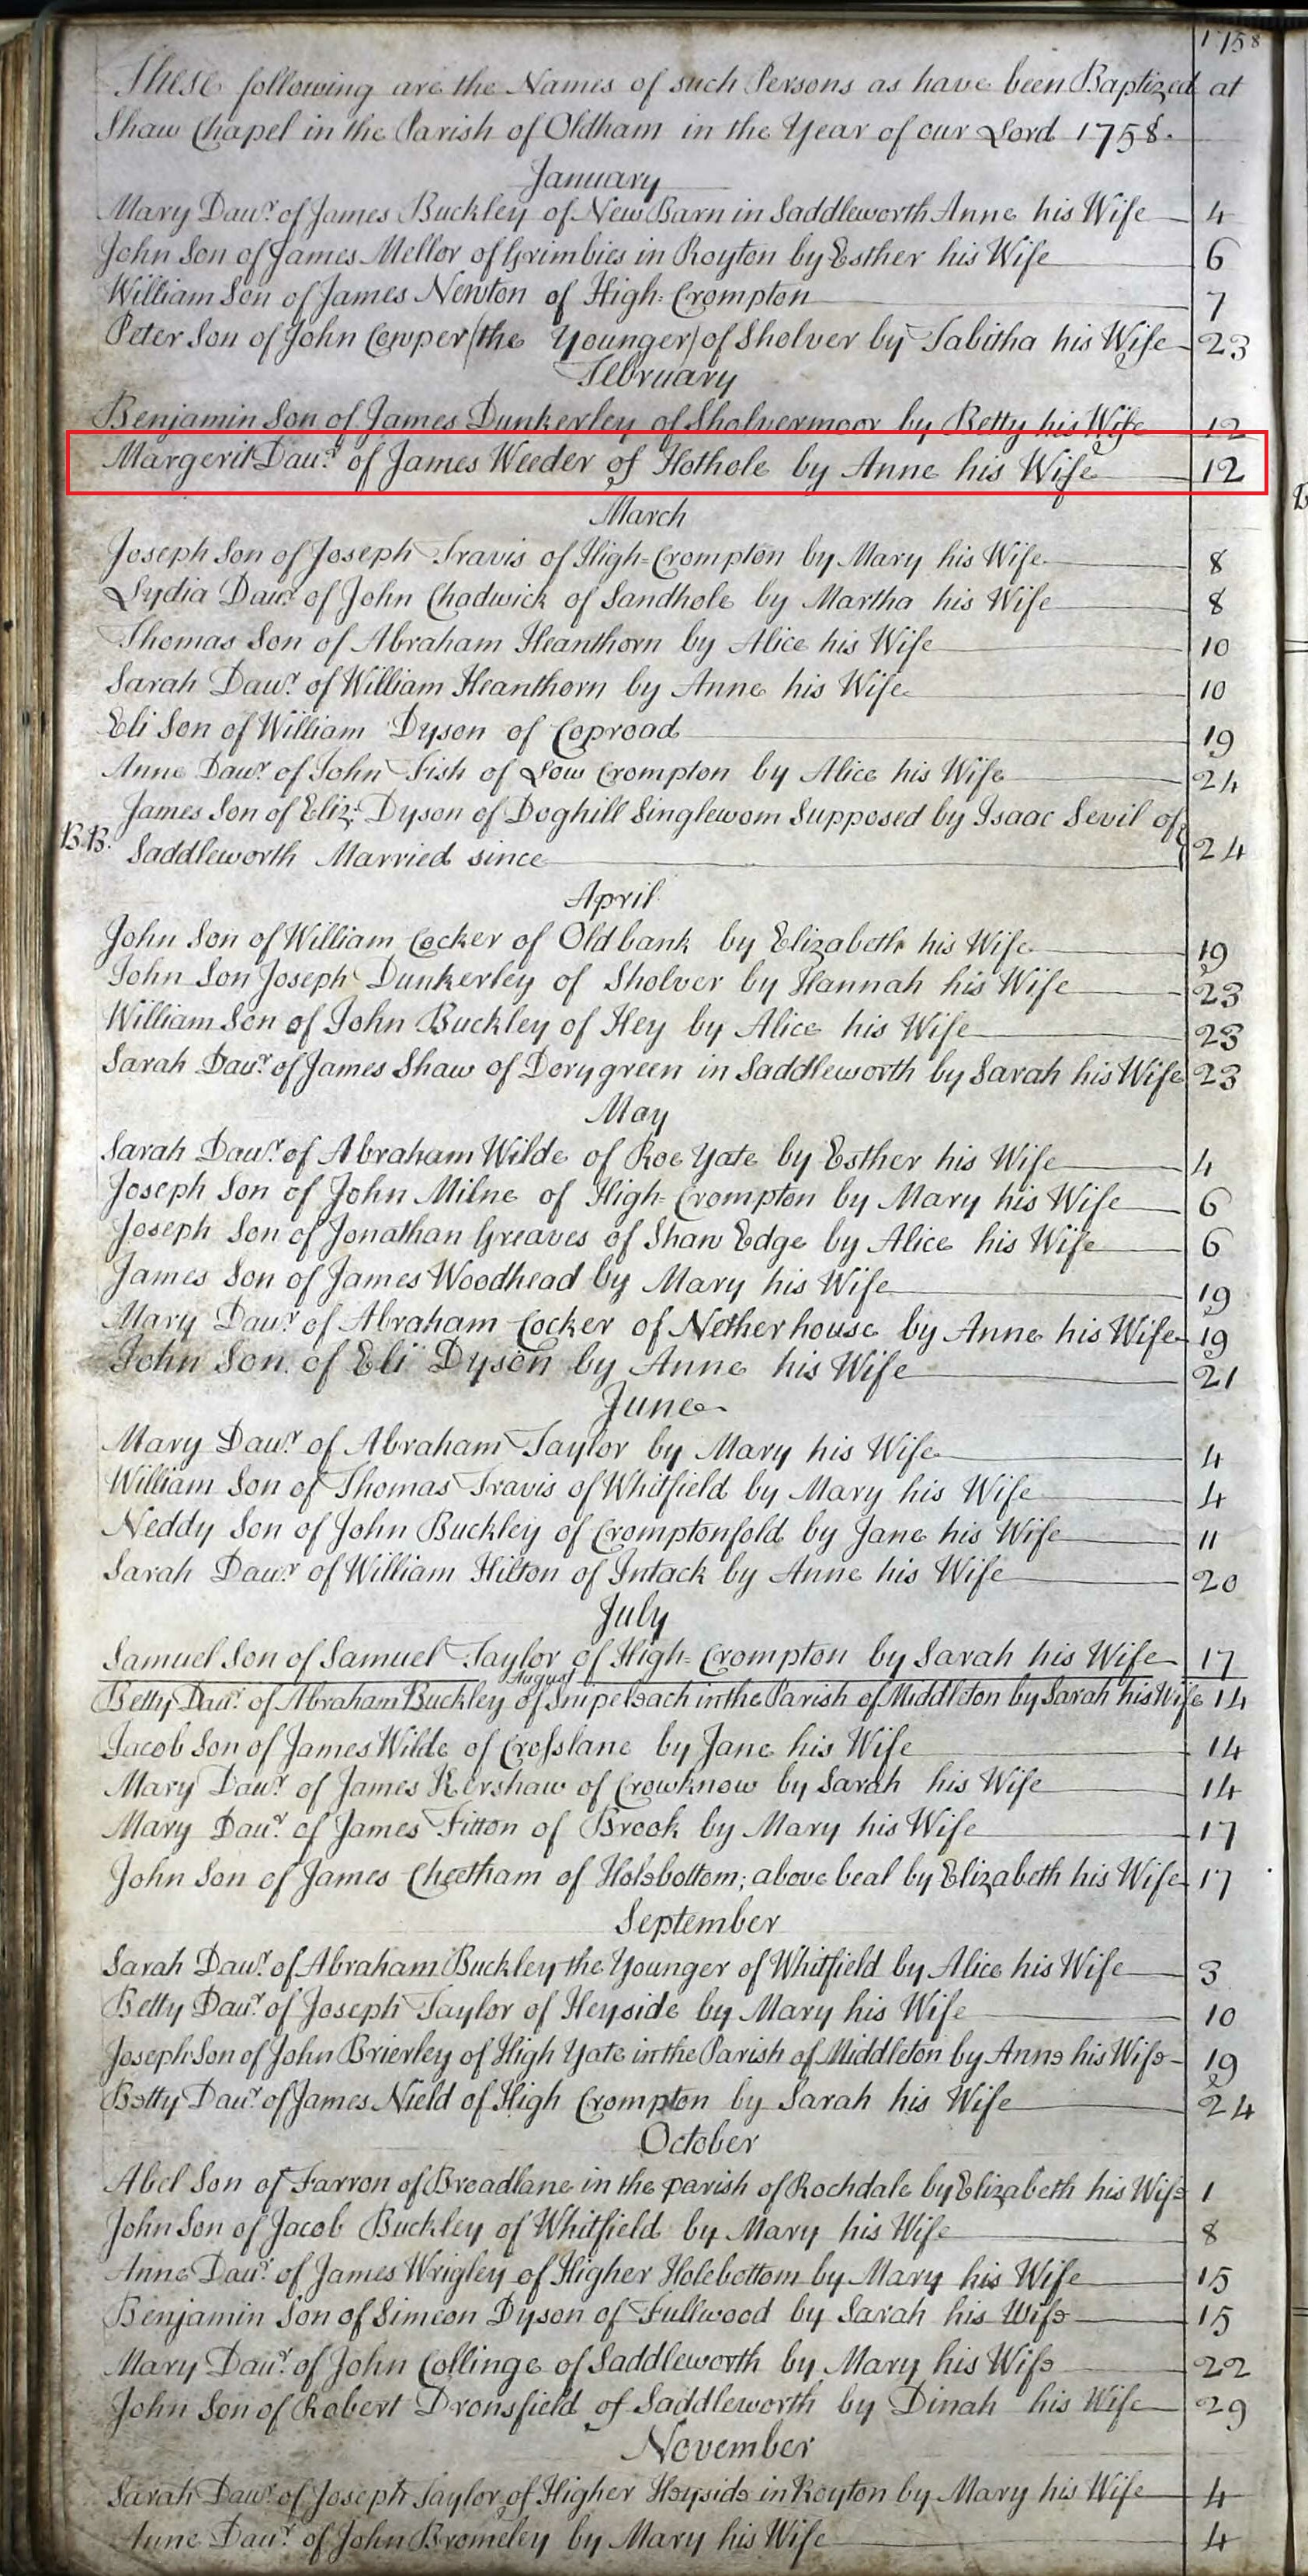 1758
These following are the Names of such Persons as have been Baptized at
Shaw Chapel in the Parish of Oldham in the Year of our Lord 1758.
January
Mary Daur. of James Buckley of New Barn in Saddleworth Anne his Wife 4
John Son of James Mellor of Grimbies in Royton by Esther his Wife 6
William Son of James Newton of High-Crompton 7
Peter Son of John Cowper (the Younger) of Sholver by Tabitha his Wife 23
February
Benjamin Son of James Dunkerley of Sholvermoor by Betty his Wife 12
Margerit Daur. of James Weeder of Hothole by Anne his Wife 12
March
Joseph Son of Joseph Travis of High-Crompton by Mary his Wife 8
Lydia Daur. of John Chadwick of Sandhole by Martha his Wife 8
Thomas Son of Abraham Heanthorn by Alice his Wife 10
Sarah Daur. of William Heanthorn by Anne his Wife 10
Eli Son of William Dyson of Coproad 19
Anne Daur. of John Fish of Low Crompton by Alice his Wife 24
James Son of Eliz: Dyson of Doghill Singlewom Supposed by Isaac Sevil of
B.B. Saddleworth Married since 24
April
John Son of William Cocker of Oldbank by Elizabeth his Wife 19
John Son Joseph Dunkerley of Sholver by Hannah his Wife 23
William Son of John Buckley of Hey by Alice his Wife 23
Sarah Daur. of James Shaw of Dorygreen in Saddleworth by Sarah his Wife 23
May
Sarah Daur. of Abraham Wilde of Roe Yate by Esther his Wife 4
Joseph Son of John Milne of High-Crompton by Mary his Wife 6
Joseph Son of Jonathan Greaves of Shaw Edge by Alice his Wife 6
James Son of James Woodhead by Mary his Wife 19
Mary Daur. of Abraham Cocker of Netherhouse by Anne his Wife 19
John Son of Eli Dyson by Anne his Wife 21
June
Mary Daur. of Abraham Taylor by Mary his Wife 4
William Son of Thomas Travis of Whitfield by Mary his Wife 4
Neddy Son of John Buckley of Cromptonfold by Jane his Wife 11
Sarah Daur. of William Hilton of Intack by Anne his Wife 20
July
Samuel Son of Samuel Taylor of High-Crompton by Sarah his Wife 17
August
Betty Daur. of Abraham Buckley of Snipeloach in the Parish of Middleton by Sarah his Wife 14
Jacob Son of James Wilde of Crosslane by Jane his Wife 14
Mary Daur. of James Kershaw of Crowknow by Sarah his Wife 14
Mary Daur. of James Fitton of Brook by Mary his Wife 17
John Son of James Cheetham of Holebottom; above beal by Elizabeth his Wife 17
September
Sarah Daur. of Abraham Buckley the Younger of Whitfield by Alice his Wife 3
Betty Daur. of Joseph Taylor of Heyside by Mary his Wife 10
Joseph Son of John Brierley of High Yate in the Parish of Middleton by Anne his Wife 19
Betty Daur. of James Nield of High Crompton by Sarah his Wife 24
October
Abel Son of Farron of Broadlane in the parish of Rochdale by Elizabeth his Wife 1
John Son of Jacob Buckley of Whitfield by Mary his Wife 8
Anne Daur. of James Wrigley of Higher Holebottom by Mary his Wife 15
Benjamin Son of Simeon Dyson of Fullwood by Sarah his Wife 15
Mary Daur. of John Collinge of Saddleworth by Mary his Wife 22
John Son of Robert Dronsfield of Saddleworth by Dinah his Wife 29
November
Sarah Daur. of Joseph Taylor of Higher Heyside in Royton by Mary his Wife 4
Anne Daur. of John Bromeley by Mary his Wife 4